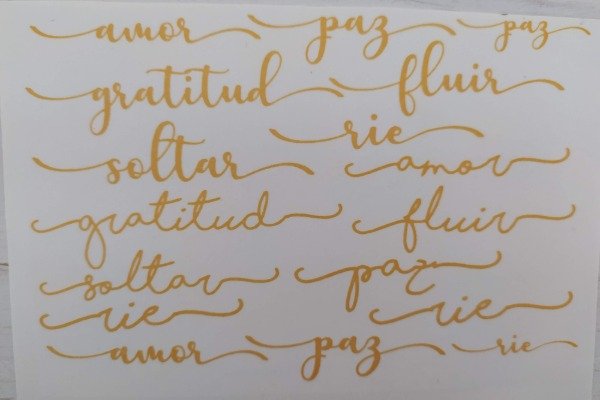 amor paz paz
gratitud fluir
rie
soltar amor
gratitud fluir
soltar paz
rie rie
amor paz rie